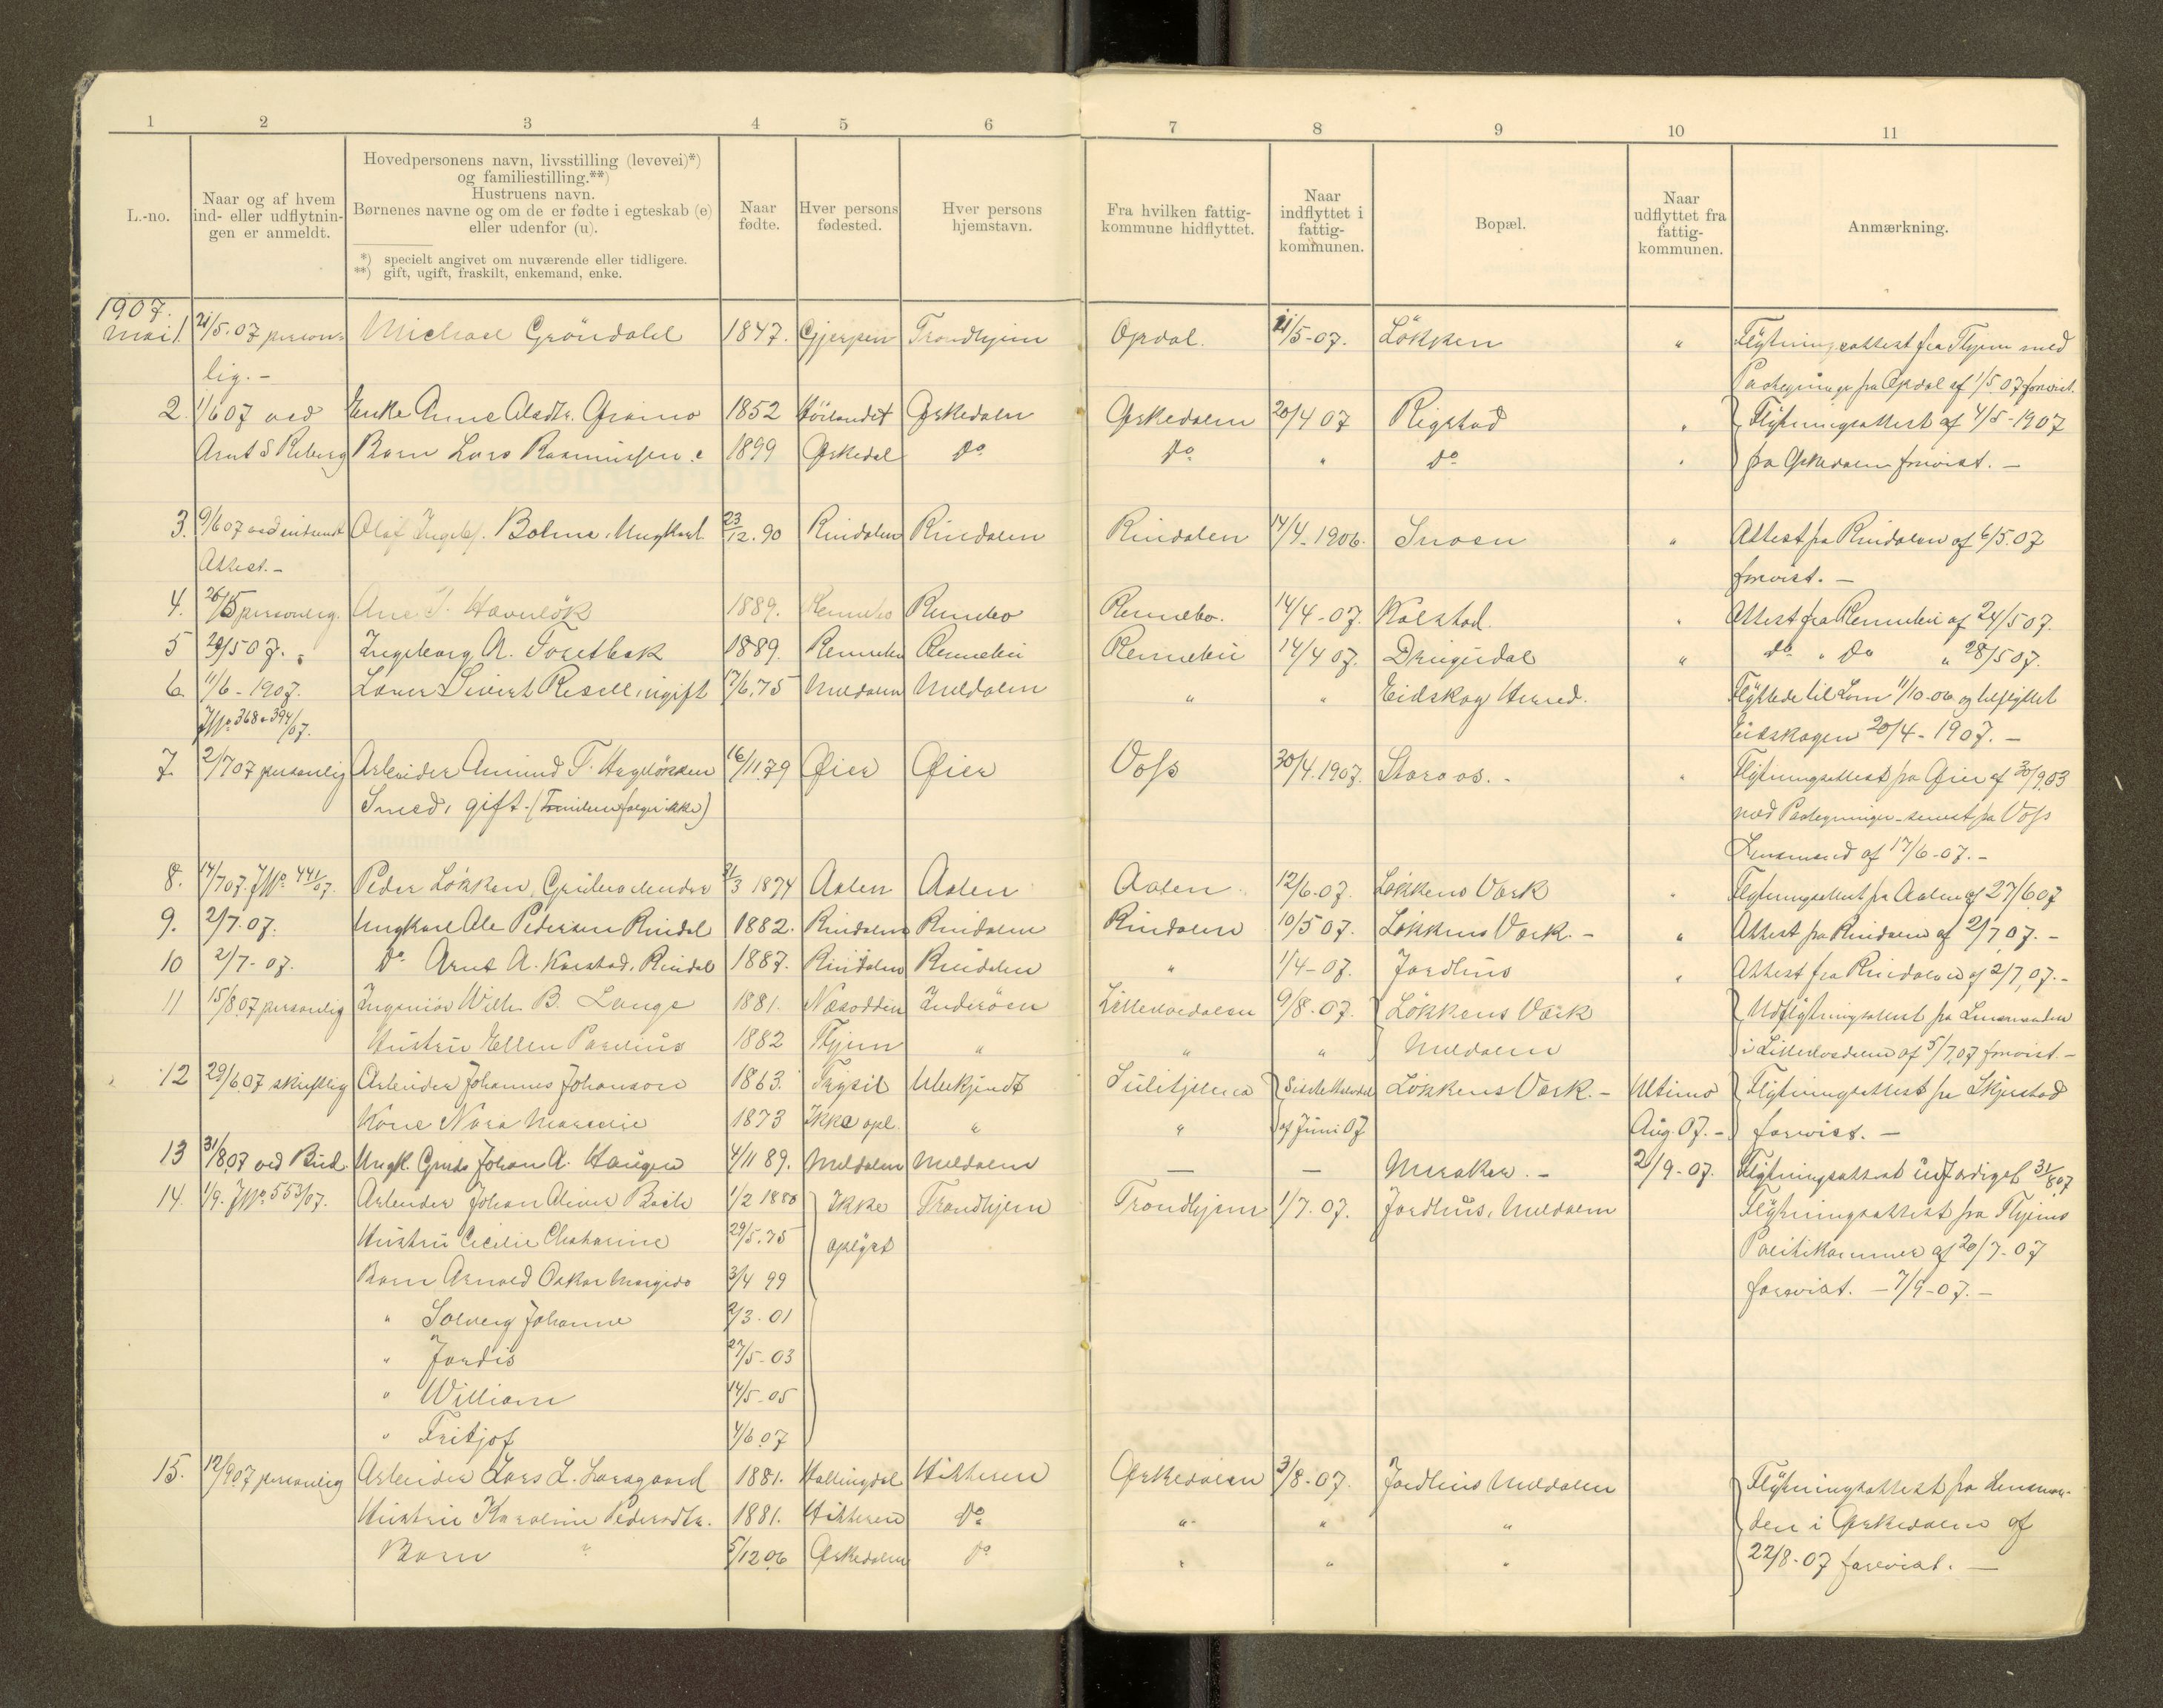 1 2 3 4 5 6 7 8 9 10 11
L.-no.
Naar og af hvem
ind- eller udflytnin-
gen er anmeldt.
Hovedpersonens navn, livsstilling (levevei)*)
og familiestilling.**)
Hustruens navn.
Børnenes navne og om de er fødte i egteskab (e)
eller udenfor (u).
*) specielt angivet om nuværende eller tidligere.
**) gift, ugift, fraskilt, enkemand, enke.
Naar
fødte.
Hver persons
fødested.
Hver persons
hjemstavn.
Fra hvilken fattig-
kommune hidflyttet.
Naar
indflyttet i
fattig-
kommunen.
Bopæl.
Naar
udflyttet fra
fattig-
kommunen.
Anmærkning.
1907.
Mai 1. 21/5.07 person- Michael Gröndahl 1847. Gjerpen Trondhjem Opdal. 21/5-07. Løkken " Flytningsattest fra Thjem med
lig.- Paategninger fra Opdal af 1/5.07 forevist.
2. 1/6 07 ved Enke Anne Olsdtr. Gramo 1852 Orkedalen Orkedalen 20/4 07 Rigstad " Flytningsattest af 4/5-1907
Arnt S Reberg Barn Lars Rasmussen e 1899 Orkedal Do Do " Do " fra Orkedalen forevist. -
3. 9/6 07 ved indsendt Olaf Ingebr. Bolme, Ungkarl 23/12.90 Rindalen Rindalen Rindalen 14/4-1906. Snoen " Attest fra Rindalen af 6/5.07
Attest.- forevist. -
4. 26/5 personlig. Ane 1889. Rennebo Rennebo Rennebo. 14/4-07. Kalstad. " Attest fra Rennebu af 24/5 07.
5 29/5 07. " Ingeborg A. Tosetbak 1889. Rennebu Rennebu Rennebu 14/4 07. Drugudal " do " do " 28/5 07.
6. 11/6-1907. Sivert Resell, ugift 17/6.75 Meldalen Meldalen " " Eidskog Herred. Flyttede til Lom 11/10-06 og tilflyttet
JNo 368 & 394/07. Eidskogen 20/4-1907. -
7. 2/7 07 personlig Arbeider Amund T. Hageløkken 16/11.79 Øier Øier Voss 30/4.1907. Storaas. - " Flytningsattest fra Øier af 30/9.03
Smed, gift. (Familien følger ikke) med Paategninger senest fra Voss
Lensmand af 17/6-07. -
8. 14/7 07. JNo. 441/07. Peder Løkken, Grubearbeider 21/3 1874 Aalen Aalen Aalen 12/6.07. Løkkens Værk " Flytningsattest fra Aalen af 27/6 07
9. 2/7.07. Ungkarl Ole Pedersen Rindal 1882. Rindalen Rindalen Rindalen 10/5 07. Løkkens Værk. - " Attest fra Rindalen af 2/7 07. -
10 2/7-07. Do Arnt A. Karstad, Rindal 1887. Rindalen Rindalen " 1/4-07. Jordhus " Attest fra Rindalen af 2/7, 07. -
11 15/8.07 personlig Ingeniør Wilh. B. Lange 1881. Næsodden Inderøen Lilleelvedalen 9/8-07. Løkkens Værk Udflytningsattest fra Lensmanden
Hustru Ellen Paselius 1882 Thjem " " " Meldalen i Lilleelvedalen af 5/7.07 forevist. -
12 29/6.07 skriftlig Arbeider Johannes Johanson 1863. Trysil Ubekjendt Sulitjelma Sidste Halvdel Løkkens Værk. - Ultimo Flytningsattest fra Skjerstad
Kone Nora 1873 Ikke opl. " " af Juni 07 Aug. 07. - forevist. -
13 31/8 07 ved Bud. Ungk. Grubarb. Johan A. Haugen 4/11 89. Meldalen Meldalen — — Meraker. - 2/9-07. Flytningsattest udfærdiget 31/8 07
14. 1/9. JNo. 553/07. Arbeider Johan Oliver Bach 1/2 1880 Ikke Trondhjem Trondhjem 1/7.07. Jordhus, Meldalen Flytningsattest fra Thjems
Hustru Cecilie Chatarine 29/5.75 oplyst Politikammer af 20/7-07
Barn Arnold Oskar 3/4 99 forevist. - 7/9-07. -
" Solveig Johanne 2/3-01
" Jordis 27/5-03
" William 14/5-05
" Fritjof 4/6 07
15. 12/9 07 personlig Arbeider Lars L. Laragaard 1881. Hallingdal Hitteren Orkedalen 3/8-07. Jordhus Meldalen Flytningsattest fra Lensman-
Hustru Karoline Pedersdtr. 1881. Hitteren Do " " " den i Orkedalen af
Barn " 5/12 06 Orkedalen Do " " " 22/8-07 forevist. -